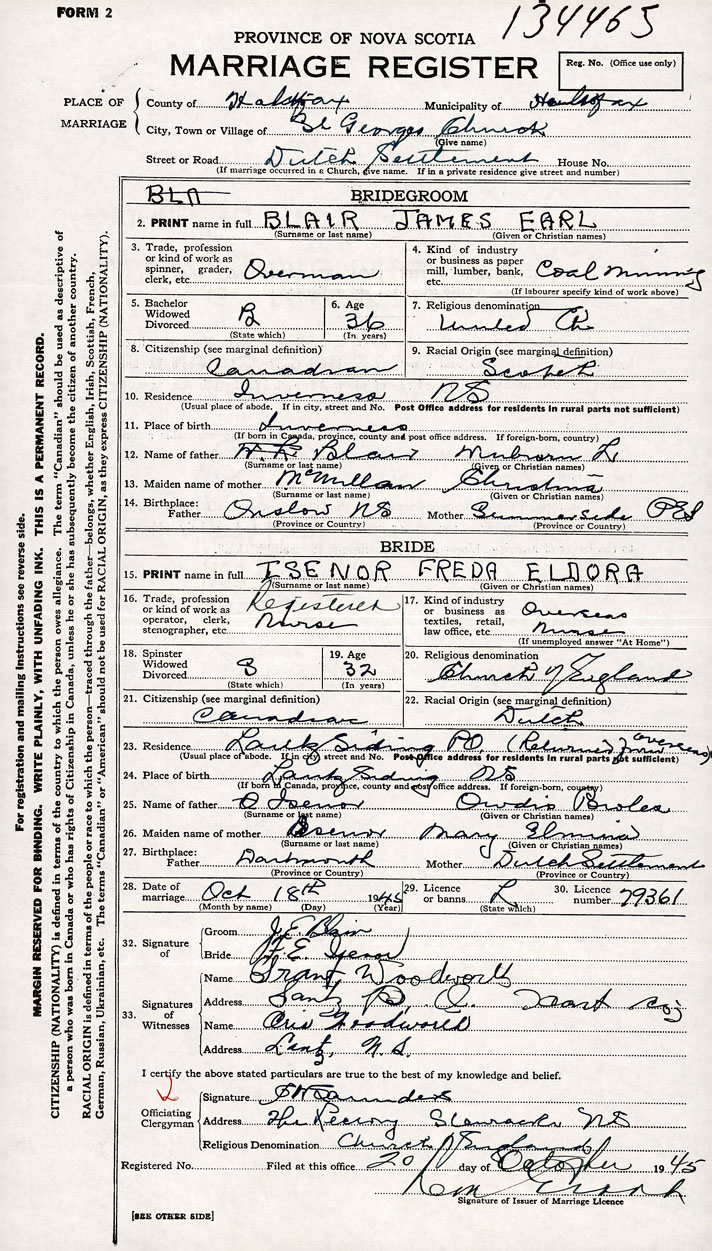 FORM 2
134465
PROVINCE OF NOVA SCOTIA
MARRIAGE REGISTER
Reg. No. (Office use only)
PLACE OF MARRIAGE
County of Halifax Municipality of Halifax
City, Town or Village of St Georges Church
(Give name)
Street or Road Dutch Settlement House No.
(If marriage occurred in a Church, give name. If in a private residence give street and number)
BRIDEGROOM
2. PRINT name in full BLAIR JAMES EARL
(Surname or last name) (Given or Christian names)
3. Trade, profession or kind of work as spinner, grader, clerk, etc. Overman
4. Kind of industry or business as paper mill, lumber, bank, etc. Coal Mining
(If labourer specify kind of work above)
5. Bachelor Widowed Divorced B
(State which)
6. Age 36
(In years)
7. Religious denomination United Ch
8. Citizenship (see marginal definition) Canadian
9. Racial Origin (see marginal definition) Scotch
10. Residence Inverness NS
(Usual place of abode. If in city, street and No. Post Office address for residents in rural parts not sufficient)
11. Place of birth Inverness
(If born in Canada, province, county and post office address. If foreign-born, country)
12. Name of father Blair L
(Surname or last name) (Given or Christian names)
13. Maiden name of mother McMillan Christina
(Surname or last name) (Given or Christian names)
14. Birthplace: Father Onslow NS Mother Summerside PEI
(Province or Country) (Province or Country)
BRIDE
15. PRINT name in full ISENOR FREDA ELDORA
(Surname or last name) (Given or Christian names)
16. Trade, profession or kind of work as operator, clerk, stenographer, etc. Registered Nurse
17. Kind of industry or business as textiles, retail, law office, etc. Overseas Nurse
(If unemployed answer "At Home")
18. Spinster Widowed Divorced S
(State which)
19. Age 32
(In years)
20. Religious denomination Church of England
21. Citizenship (see marginal definition) Canadian
22. Racial Origin (see marginal definition) Dutch
23. Residence Lantz Siding PO. (Returned from overseas)
(Usual place of abode. If in city street and No. Post Office address for residents in rural parts not sufficient)
24. Place of birth Lantz Siding NS
(If born in Canada, province, county and post office address. If foreign-born, country)
25. Name of father Isenor
(Surname or last name) (Given or Christian names)
26. Maiden name of mother Isenor Mary Elmina
(Surname or last name) (Given or Christian names)
27. Birthplace: Father Dartmouth Mother Dutch Settlement
(Province or Country) (Province or Country)
28. Date of marriage Oct 18th 1945
(Month by name) (Day) (Year)
29. Licence or banns L
(State which)
30. Licence number 79361
32. Signature of
Groom J.E. Blair
Bride F. E. Isenor
33. Signatures of Witnesses
Name Grant Woodworth
Address Lantz P. O.
Name Woodworth
Address Lantz, N.S.
I certify the above stated particulars are true to the best of my knowledge and belief.
Officiating Clergyman
Signature
Address The Rectory NS
Religious Denomination Church of England
Registered No. Filed at this office 20 day of October 1945
Signature of Issuer of Marriage Licence
[SEE OTHER SIDE]
For registration and mailing instructions see reverse side.
MARGIN RESERVED FOR BINDING. WRITE PLAINLY, WITH UNFADING INK. THIS IS A PERMANENT RECORD.
CITIZENSHIP (NATIONALITY) is defined in terms of the country to which the person owes allegiance. The term "Canadian" should be used as descriptive of
a person who was born in Canada or who has rights of Citizenship in Canada, unless he or she has subsequently become the citizen of another country.
RACIAL ORIGIN is defined in terms of the people or race to which the person—traced through the father—belongs, whether English, Irish, Scottish, French,
German, Russian, Ukrainian, etc. The terms "Canadian" or "American" should not be used for RACIAL ORIGIN, as they express CITIZENSHIP (NATIONALITY).